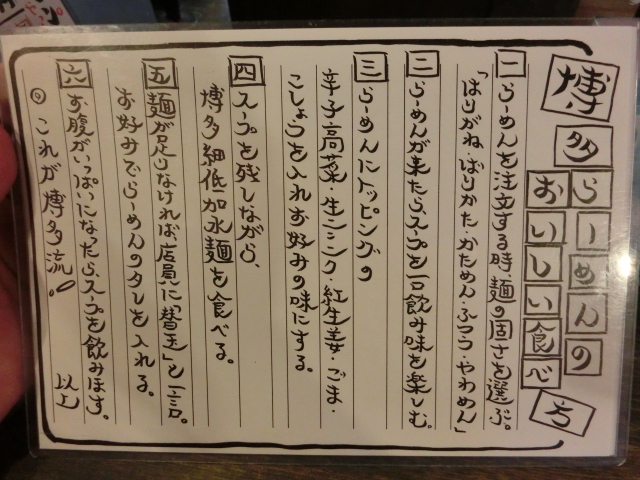 博多らーめんの
おいしい食べ方
一 らーめんを注文する時、麺の固さを選ぶ。
「はりがね・ばりかた・かためん・ふつう・やわめん」
二 らーめんが来たら、スープを一口飲み味を楽しむ。
三 らーめんにトッピングの
辛子高菜・生ニンニク・紅生姜・ごま・
こしょうを入れお好みの味にする。
四 スープを残しながら、
博多細低加水麺を食べる。
五 麺が足りなければ店員に「替玉」と一言。
お好みでらーめんのタレを入れる。
六 お腹がいっぱいになったら、スープを飲みほす。
◎ これが博多流!
以上